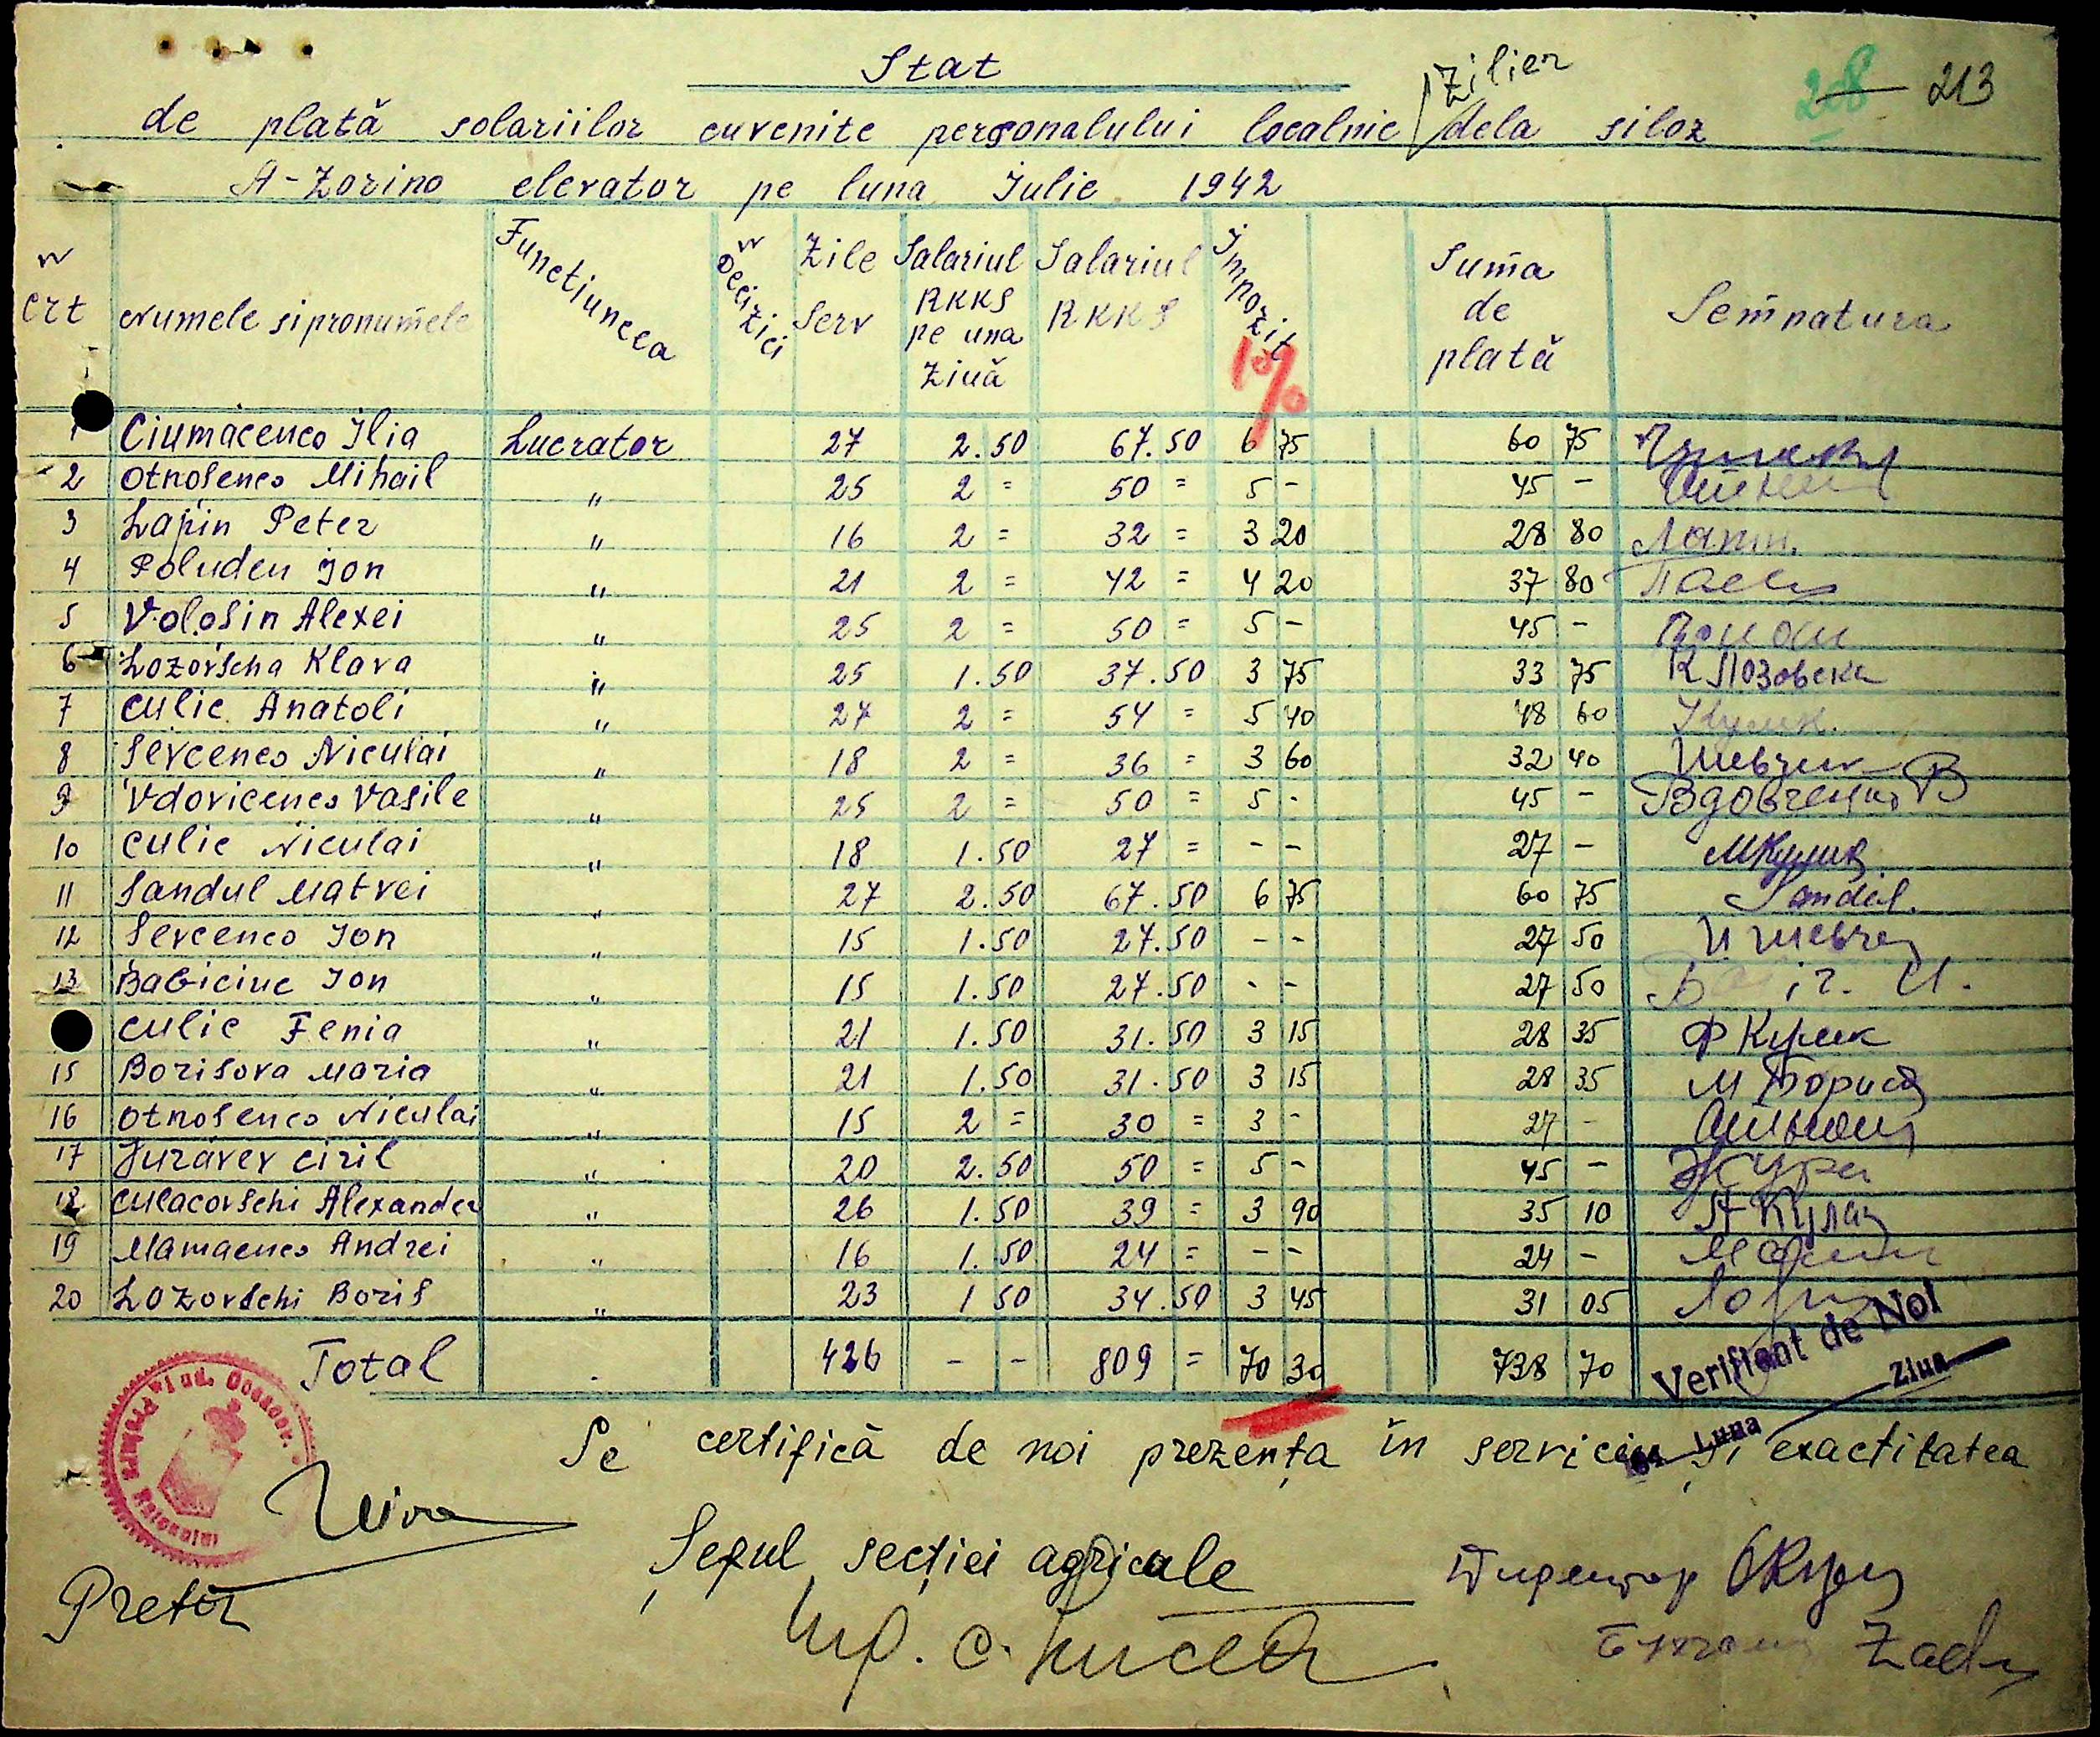 Stat
208 213
Zilier
de plată solariilor cuvenite personalului localnic dela siloz
A-Zorino elevator pe luna Iulie 1942
N crt Numele si pronumele Functiunea N Decizici Zile Serv Salariul RKKS pe una Ziuă Salariul RKKS Impozit 10% Suma de plată Semnatura
1 Ciumacenco Ilia Lucrator 27 2.50 67.50 6 75 60 75
2 Otnosenco Mihail " 25 2 = 50 = 5 - 45 -
3 Lapin Peter " 16 2 = 32 = 3 20 28 80 Лапин
4 Poludeu Ion " 21 2 = 42 = 4 20 37 80
5 Volosin Alexei " 25 2 = 50 = 5 - 45 -
6 Lozovscha Klava " 25 1.50 37.50 3 75 33 75 К Лозовска
7 Culic Anatoli " 27 2 = 54 = 5 40 48 60 Кулик.
8 Sevcenco Niculai " 18 2 = 36 = 3 60 32 40 Шевченк
9 Vdovicenco Vasile " 25 2 = 50 = 5 - 45 - Вдовченко В
10 Culic Niculai " 18 1.50 27 = - - 27 - МКулик
11 Sandul Matvei " 27 2.50 67.50 6 75 60 75 Sandul.
12 Sevcenco Ion " 15 1.50 27.50 - - 27 50 И Шевче
13 Babiciuc Ion " 15 1.50 27.50 - - 27 50
Culic Fenia " 21 1.50 31.50 3 15 28 35 Ф Кулик
15 Borisova Maria " 21 1.50 31.50 3 15 28 35 М Борисо
16 Otnosenco Niculai " 15 2 = 30 = 3 - 27 -
17 Juravev Ciril " 20 2.50 50 = 5 - 45 - Жура
18 Culacovschi Alexander " 26 1.50 39 = 3 90 35 10 А Кулак
19 Mamaenco Andrei " 16 1.50 24 = - - 24 -
20 Lozovschi Boris " 23 1 50 34.50 3 45 31 05
Total 426 - - 809 = 70 30 738 70
Verificat de Noi
Ziua
Luna
Se certifică de noi prezența în serviciu și exactitatea
Pretor
Șeful secției agricole
Директор
Ing. C.